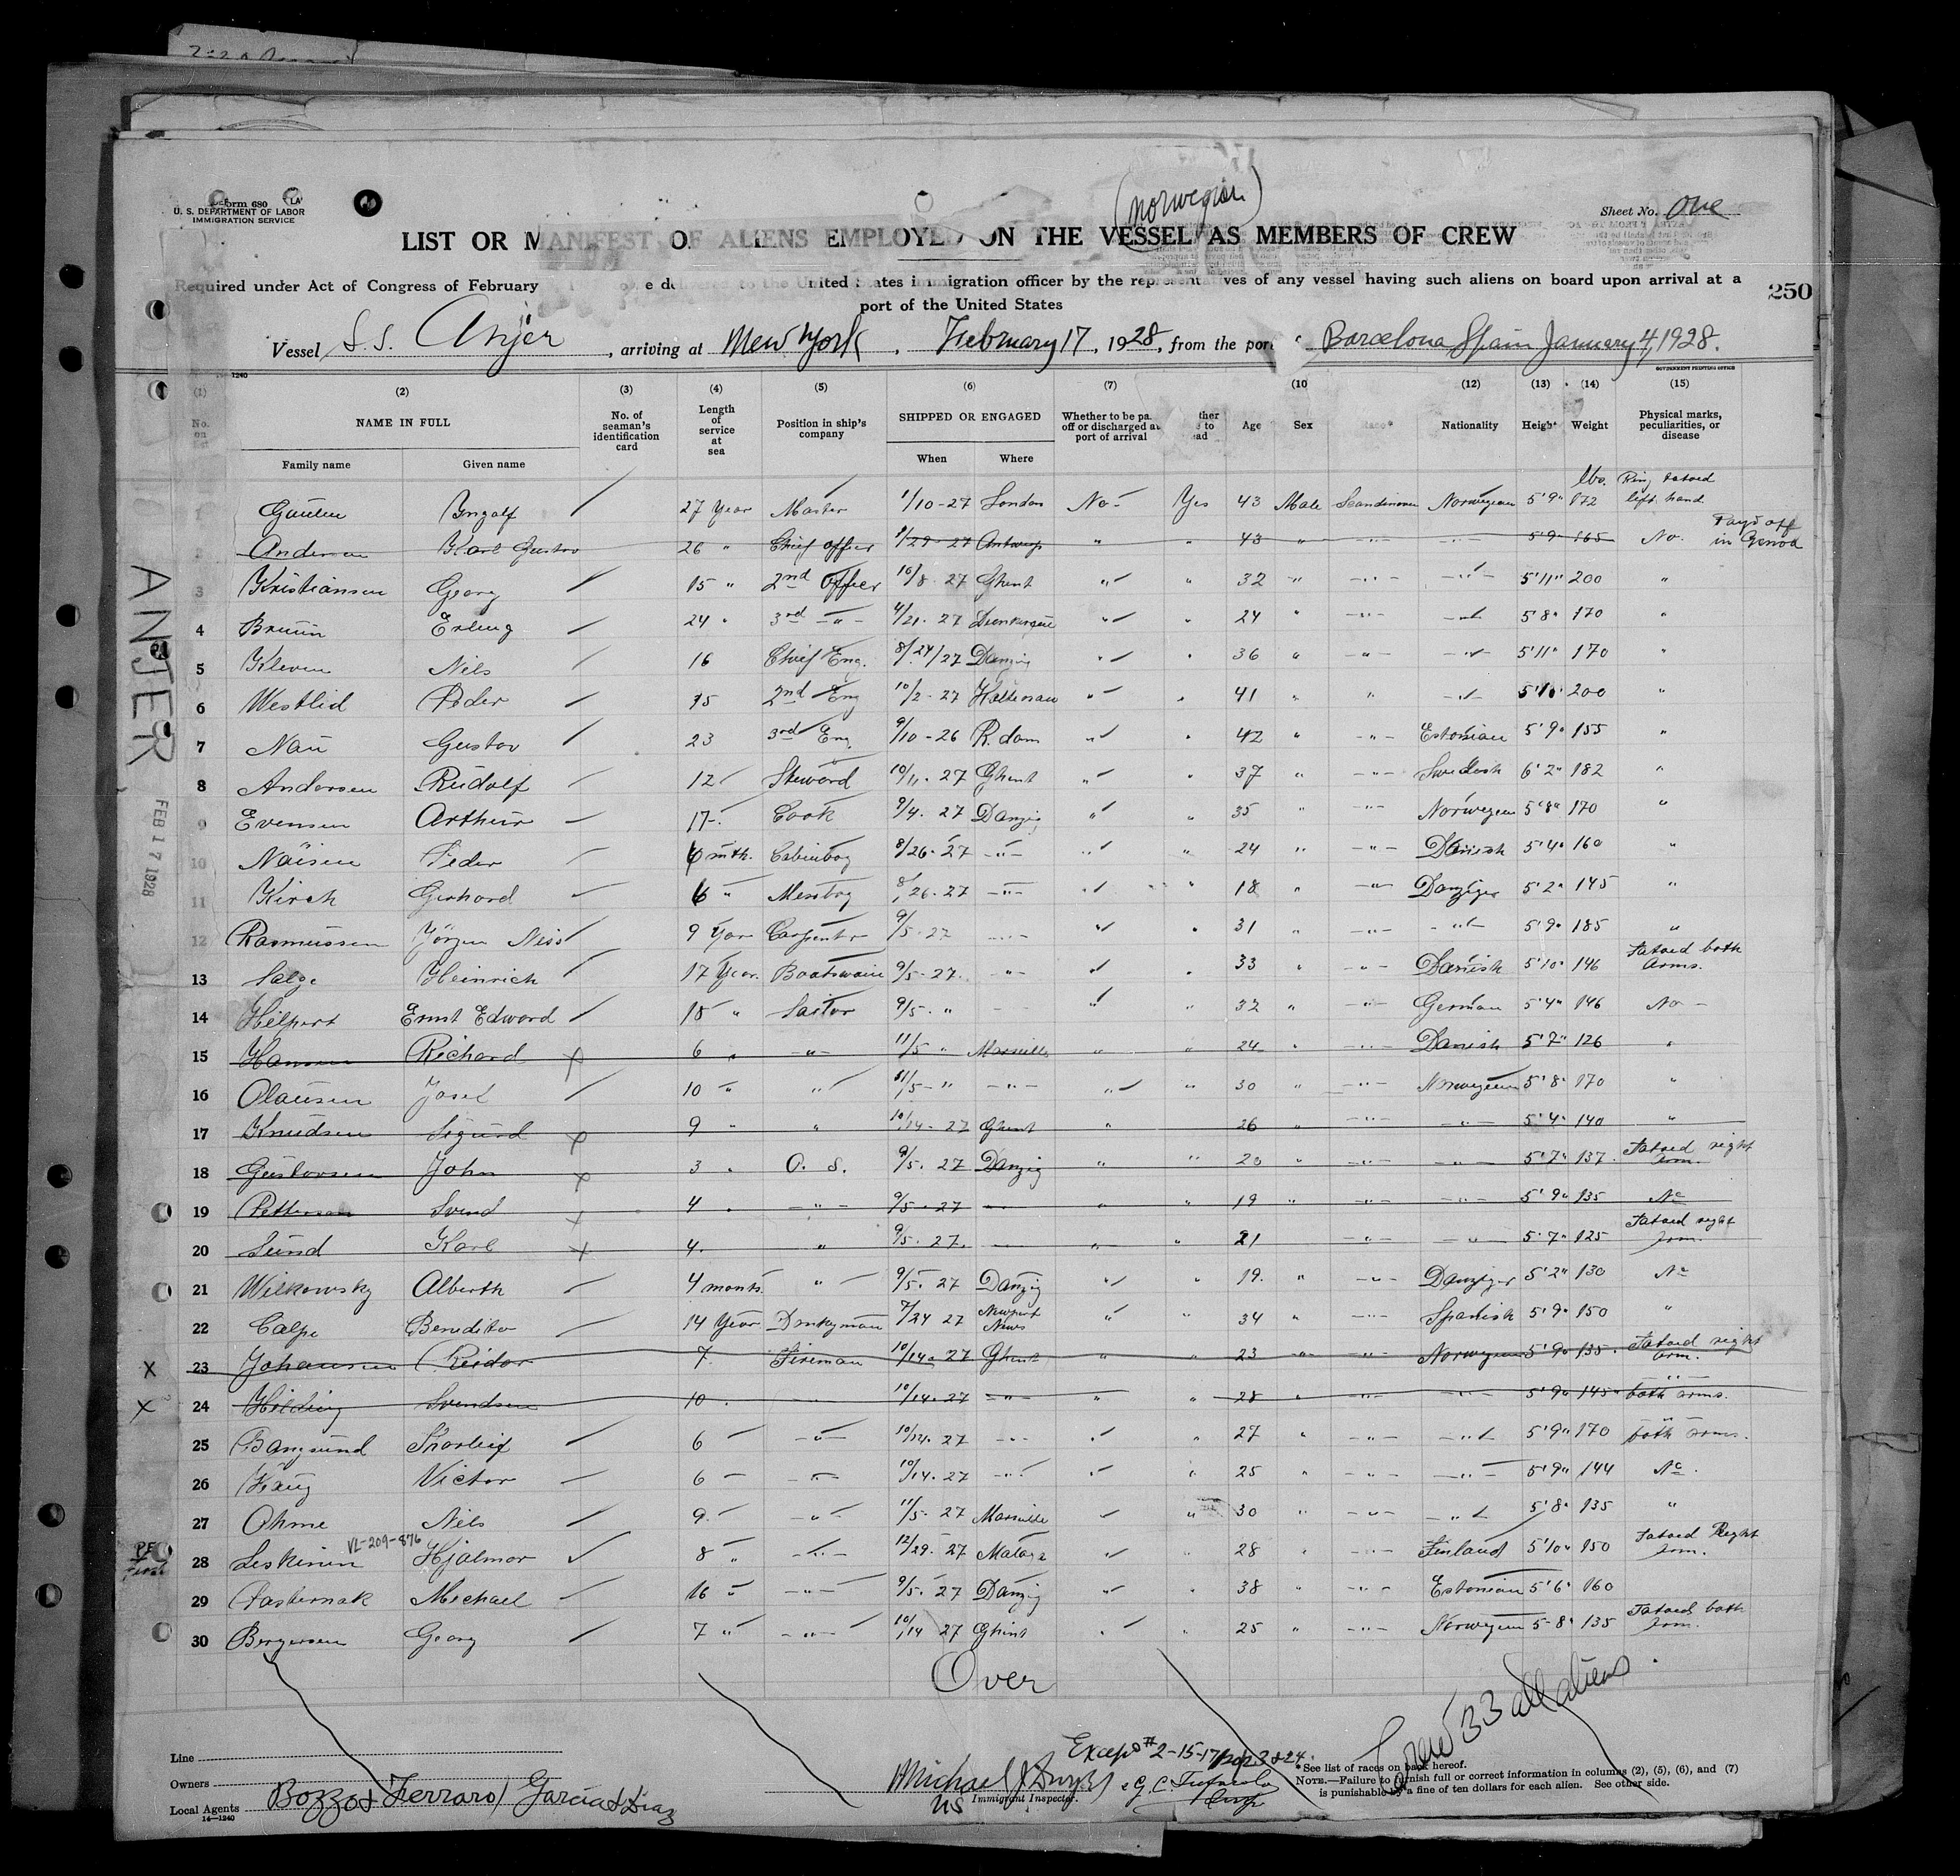 Form 680
U. S. DEPARTMENT OF LABOR
IMMIGRATION SERVICE
(Norwegian)
Sheet No. One
LIST OR MANIFEST OF ALIENS EMPLOYED ON THE VESSEL AS MEMBERS OF CREW
Required under Act of Congress of February United States immigration officer by the representatives of any vessel having such aliens on board upon arrival at a
port of the United States
250
Vessel S.S. Anjer, arriving at New York, February 17, 1928, from the port Barcelona Spain January 4, 1928.
1240
GOVERNMENT PRINTING OFFICE
(1) (2) (3) (4) (5) (6) (7) (10 (12) (13) (14) (15)
No. on NAME IN FULL No. of seaman's identification card Length of service at sea Position in ship's company SHIPPED OR ENGAGED Whether to be pa off or discharged at port of arrival Age Sex Nationality Height Weight Physical marks, peculiarities, or disease
Family name Given name When Where
27 Year Master 1/10-27 London No Yes 43 Male Norwegian 5'9" lbs. 172 Ring tatoed left hand
Karl Gustav 26 " Chief officer 27 Antwerp " " 43 " -"- -"- 5'9" 165 No. Payd off in Genoa
3 Kristiansen Georg 15 " 2nd Officer 10/8 27 Ghent " " 32 " -"- -"- 5'11" 200 "
4 Bruun Erling 24 " 3rd -"- 4/21. 27 Dunkerque " " 24 " -"- -"- 5'8" 170 "
5 Kleven Nils 16 Chief Eng. 8/24/27 Danzig " " 36 " -"- -"- 5'11" 170 "
6 Westlid Peder 15 2nd Eng 10/2-27 Holtenau " " 41 " " -"- 5'10" 200 "
7 Nau Gustav 23 3rd Eng. 9/10-26 R.dam " " 42 " -"- Estonian 5'9" 155 "
8 Andersen Rudolf 12 Steward 10/11. 27 Ghent " " 37 " -"- Swedish 6'2" 182 "
9 Evensen Arthur 17 Cook 9/4. 27 Danzig " " 35 " -"- Norwegian 5'8" 170 "
10 Peder 6 mth. Cabinboy 8/26-27 -"- " " 24 " -"- Danish 5'4" 160 "
11 Kirch Gerhard 6 " Messboy 8/26-27 -"- " " 18 " -"- Danziger 5'2" 145 "
12 Rasmussen Jörgen 9 Year Carpenter 9/5-27 -"- " " 31 " -"- -"- 5'9" 185 "
13 Heinrich 17 Year. Boatswain 9/5-27. -"- " " 33 " -"- Danish 5'10" 146 Tatoed both arms.
14 Hilpert Ernst Edward 18 " Sailor 9/5. " -"- " " 32 " -"- German 5'4" 146 No -
15 Hansen Richard 6 " -"- 11/5 " Marseille " " 24 " -"- Danish 5'7" 126 "
16 Olausen Josef 10 " " 11/5-" -"- " " 30 " -"- Norwegian 5'8" 170 "
17 Knudsen Sigurd 9 " " 10/14-27 Ghent " 26 " -"- -"- 5'4" 140 "
18 Gustavsen John 3 " O. S. 9/5. 27 Danzig " " 20 " -"- -"- 5'7" 137. Tatoed right arm.
19 Pettersen Svend 4 " -"- 9/5. 27 -"- " " 19 " -"- -"- 5'9" 135 No
20 Sund Karl 4. " 9/5. 27. " " 21 -"- -"- 5'7" 125 Tatoed right arm.
21 Wilkowsky Alberth 4 months " 9/5. 27 Danzig " " 19. " -"- Danziger 5'2" 130 No
22 Calpe Benedito 14 Year Donkeyman 7/24 27 Newport News " " 34 " -"- Spanish 5'9" 150 "
X 23 Johansen Reidar 7. Fireman 10/14. 27 Ghent " " 23 -"- -"- Norwegian 5'9" 135. Tatoed right arm.
X 24 Hilding Svendsen 10. -"- 10/14. 27 -"- " " 28 " -"- -"- 5'9" 145 " both arms.
25 Bangsund 6 -"- 10/14. 27 -"- " " 27 " -"- -"- 5'9" 170 " both arms.
26 Victor 6 -"- 10/14. 27 -"- " 25 " -"- -"- 5'9" 144 No.
27 Ohme Nils 9. -"- 11/5-27 Marseille " " 30 " -"- -"- 5'8" 135 "
28 Leskinen VL-209-876 Hjalmar 8 " -"- 12/29. 27 " " 28 " -"- Finland 5'10" 150 Tatoed Right arm.
29 Pasternak Michael 16 " -"- 9/5. 27 Danzig " " 38 " -"- Estonian 5'6" 160
30 Bergersen Georg 7 " -"- 10/14 27 Ghent " " 25 " -"- Norwegian 5-8" 135 Tatoed both arm.
ANJER
FEB 17 1928
Over
Crew 33 all aliens.
Line
Owners
Local Agents Bozzo & Ferraro / Garcia & Diaz
14—1240
Michael J Dwyer
US Immigrant Inspector.
*See list of races on back hereof.
NOTE.—Failure to furnish full or correct information in columns (2), (5), (6), and (7)
is punishable by a fine of ten dollars for each alien. See other side.